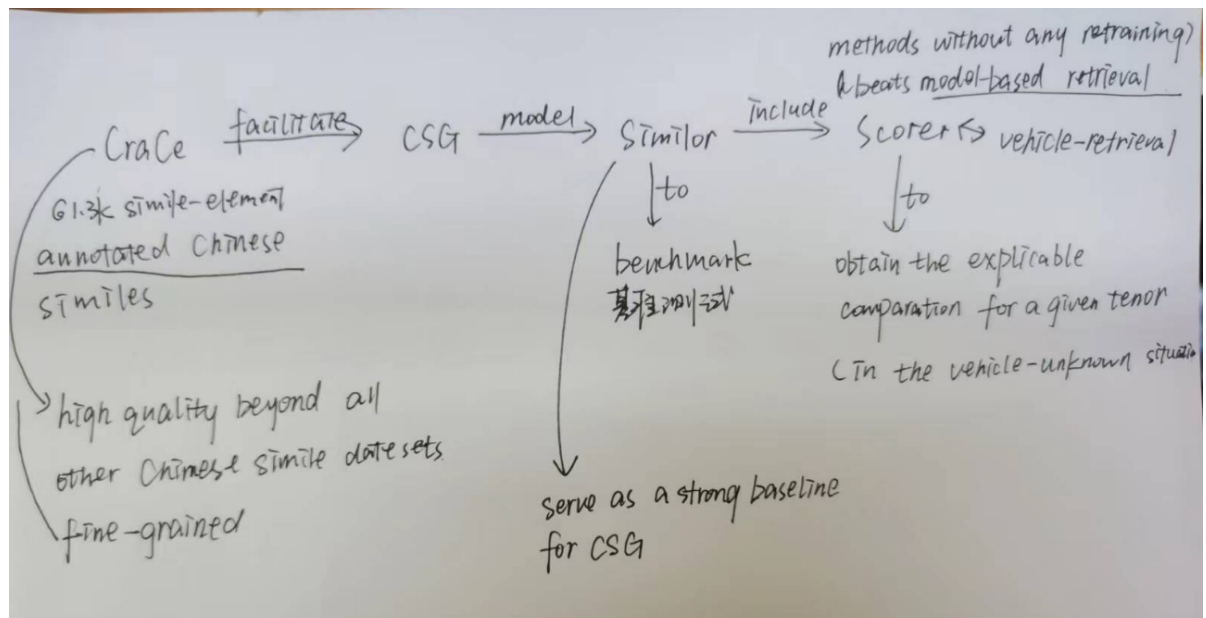 methods without any retraining)
& beats model-based retrieval
CraCe facilitate CSG model Similor include Scorer ↔ vehicle-retrieval
61.3k simile-element
annotated Chinese
similes
to
benchmark
基准测试
to
obtain the explicable
comparation for a given tenor
(in the vehicle-unknown situatio
high quality beyond all
other Chinese simile datesets
fine-grained
serve as a strong baseline
for CSG